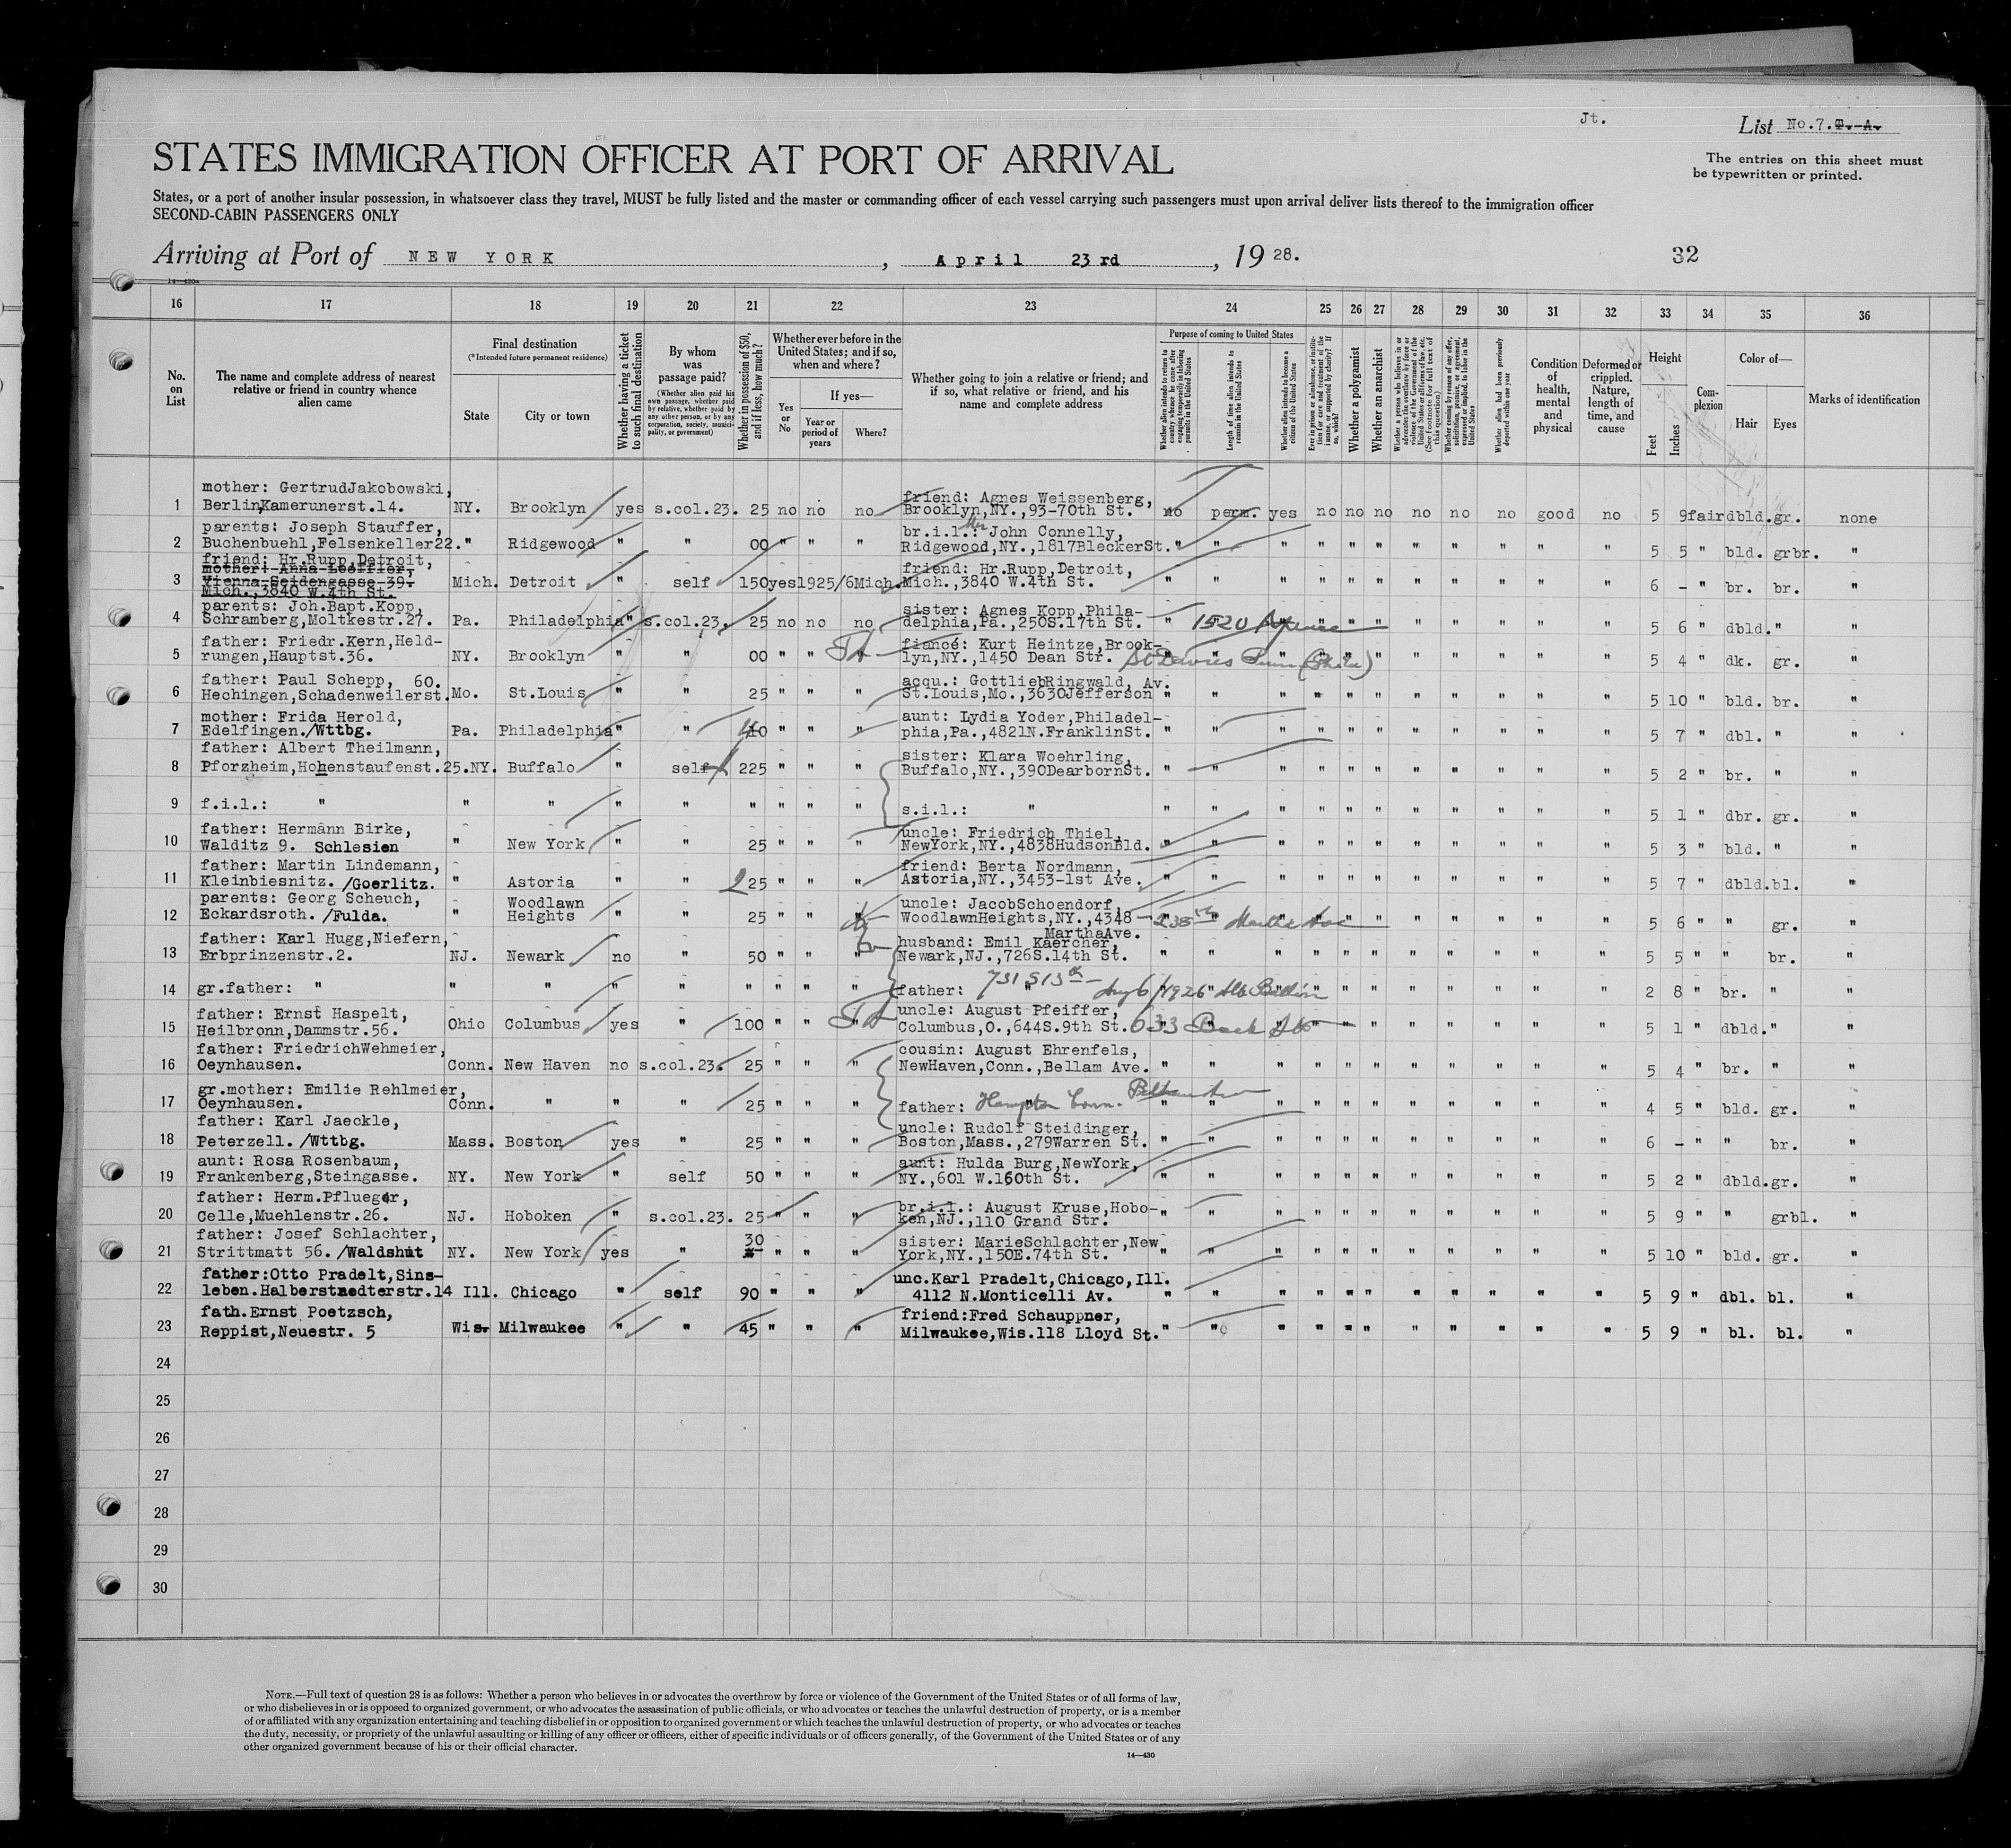 Jt.
List No.7.T.-A.
STATES IMMIGRATION OFFICER AT PORT OF ARRIVAL
The entries on this sheet must
be typewritten or printed.
States, or a port of another insular possession, in whatsoever class they travel, MUST be fully listed and the master or commanding officer of each vessel carrying such passengers must upon arrival deliver lists thereof to the immigration officer
SECOND-CABIN PASSENGERS ONLY
Arriving at Port of NEW YORK, April 23rd, 1928.
32
14—430a
16 17 18 19 20 21 22 23 24 25 26 27 28 29 30 31 32 33 34 35 36
No. on List
The name and complete address of nearest relative or friend in country whence alien came
Final destination
(*Intended future permanent residence)
State
City or town
Whether having a ticket to such final destination
By whom was passage paid?
(Whether alien paid his own passage, whether paid by relative, whether paid by any other person, or by any corporation, society, municipality, or government)
Whether in possession of $50, and if less, how much?
Whether ever before in the United States; and if so, when and where?
Yes or No
If yes—
Year or period of years
Where?
Whether going to join a relative or friend; and if so, what relative or friend, and his name and complete address
Purpose of coming to United States
Whether alien intends to return to country whence he came after engaging temporarily in laboring pursuits in the United States
Length of time alien intends to remain in the United States
Whether alien intends to become a citizen of the United States
Ever in prison or almshouse, or institution for care and treatment of the insane, or supported by charity? If so, which?
Whether a polygamist
Whether an anarchist
Whether a person who believes in or advocates the overthrow by force or violence of the Government of the United States or all forms of law, etc. (See footnote for full text of this question)
Whether coming by reason of any offer, solicitation, promise, or agreement, expressed or implied, to labor in the United States
Whether alien had been previously deported within one year
Condition of health, mental and physical
Deformed or crippled. Nature, length of time, and cause
Height
Feet
Inches
Complexion
Color of—
Hair
Eyes
Marks of identification
mother: GertrudJakobowski, friend: Agnes Weissenberg,
1 Berlin,Kamerunerst.14. NY. Brooklyn yes s.col.23. 25 no no no Brooklyn,NY.,93-70th St. no perm. yes no no no no no no good no 5 9 fair dbld. gr. none
parents: Joseph Stauffer, br.i.l.: John Connelly,
2 Buchenbuehl,Felsenkeller22. " Ridgewood " " 00 " " " Ridgewood,NY.,1817BleckerSt. " " " " " " " " " " " 5 5 " bld. grbr. "
friend: Hr.Rupp,Detroit,
mother: Anna Loeffler, friend: Hr.Rupp,Detroit,
3 Vienna-Seidengasse-39. Mich. Detroit " self 150 yes 1925/6 Mich. Mich.,3840 W.4th St. " " " " " " " " " " " 6 - " br. br. "
Mich.,3840 W.4th St.
parents: Joh.Bapt.Kopp, sister: Agnes Kopp,Phila-
4 Schramberg,Moltkestr.27. Pa. Philadelphia " s.col.23. 25 no no no delphia,Pa.,250S.17th St. " 1520 " " " " " " " " 5 6 " dbld. " "
father: Friedr.Kern,Held- fiancé: Kurt Heintze,Brook-
5 rungen,Hauptst.36. NY. Brooklyn " " 00 " " " lyn,NY.,1450 Dean Str. " " " " " " " " 5 4 " dk. gr. "
father: Paul Schepp, 60. acqu.: GottliebRingwald, Av.
6 Hechingen,Schadenweilerst. Mo. St.Louis " " 25 " " " St.Louis,Mo.,3630Jefferson " " " " " " " " " " " 5 10 " bld. br. "
mother: Frida Herold, aunt: Lydia Yoder,Philadel-
7 Edelfingen./Wttbg. Pa. Philadelphia " " 40 " " " phia,Pa.,4821N.FranklinSt. " " " " " " " " " " " 5 7 " dbl. " "
father: Albert Theilmann, sister: Klara Woehrling,
8 Pforzheim,Hohenstaufenst.25. NY. Buffalo " self 225 " " " Buffalo,NY.,390DearbornSt. " " " " " " " " " " " 5 2 " br. " "
9 f.i.l.: " " " " " " " " " s.i.l.: " " " " " " " " " " " " 5 1 " dbr. gr. "
father: Hermann Birke, uncle: Friedrich Thiel,
10 Walditz 9. Schlesien " New York " " 25 " " " NewYork,NY.,4838HudsonBld. " " " " " " " " " " " 5 3 " bld. " "
father: Martin Lindemann, friend: Berta Nordmann,
11 Kleinbiesnitz. /Goerlitz. " Astoria " " 225 " " " Astoria,NY.,3453-1st Ave. " " " " " " " " " " " 5 7 " dbld. bl. "
parents: Georg Scheuch, Woodlawn uncle: JacobSchoendorf,
12 Eckardsroth. /Fulda. " Heights " " 25 " " " WoodlawnHeights,NY.,4348- 238th Martha Ave " " " " " " " 5 6 " " gr. "
MarthaAve.
father: Karl Hugg,Niefern, husband: Emil Kaercher,
13 Erbprinzenstr.2. NJ. Newark no " 50 " " " Newark,NJ.,726S.14th St. " " " " " " " " " " " 5 5 " " br. "
14 gr.father: " " " " " " " " " father: 731 S 13th Aug 6/1926 " " " " " " " 2 8 " br. " "
father: Ernst Haspelt, uncle: August Pfeiffer,
15 Heilbronn,Dammstr.56. Ohio Columbus yes " 100 " " " Columbus,O.,644S.9th St. " " " " " " " " " 5 1 " dbld. " "
father: FriedrichWehmeier, cousin: August Ehrenfels,
16 Oeynhausen. Conn. New Haven no s.col.23. 25 " " " NewHaven,Conn.,Bellam Ave. " " " " " " " " " " " 5 4 " br. " "
gr.mother: Emilie Rehlmeier,
17 Oeynhausen. Conn. " " " 25 " " " father: Hampton Conn. " " " " " " " " " " " 4 5 " bld. gr. "
father: Karl Jaeckle, uncle: Rudolf Steidinger,
18 Peterzell. /Wttbg. Mass. Boston yes " 25 " " " Boston,Mass.,279Warren St. " " " " " " " " " " " 6 - " " br. "
aunt: Rosa Rosenbaum, aunt: Hulda Burg,NewYork,
19 Frankenberg,Steingasse. NY. New York " self 50 " " " NY.,601 W.160th St. " " " " " " " " " " " 5 2 " dbld. gr. "
father: Herm.Pflueger, br.i.l.: August Kruse,Hobo-
20 Celle,Muehlenstr.26. NJ. Hoboken " s.col.23. 25 " " " ken,NJ.,110 Grand Str. " " " " " " " " " " " 5 9 " " grbl. "
father: Josef Schlachter, 30 sister: MarieSchlachter,New
21 Strittmatt 56. /Waldshut NY. New York yes " " " " York,NY.,150E.74th St. " " " " " " " " " " " 5 10 " bld. gr. "
father:Otto Pradelt,Sins- unc.Karl Pradelt,Chicago,Ill.
22 leben.Halberstaedterstr.14 Ill. Chicago " self 90 " " " 4112 N.Monticelli Av. " " " " " " " " " " " 5 9 " dbl. bl. "
fath.Ernst Poetzsch, friend:Fred Schauppner,
23 Reppist,Neuestr. 5 Wis. Milwaukee " " 45 " " " Milwaukee,Wis.118 Lloyd St. " " " " " " " " " " " 5 9 " bl. bl. "
24
25
26
27
28
29
30
NOTE.—Full text of question 28 is as follows: Whether a person who believes in or advocates the overthrow by force or violence of the Government of the United States or of all forms of law,
or who disbelieves in or is opposed to organized government, or who advocates the assassination of public officials, or who advocates or teaches the unlawful destruction of property, or is a member
of or affiliated with any organization entertaining and teaching disbelief in or opposition to organized government or which teaches the unlawful destruction of property, or who advocates or teaches
the duty, necessity, or propriety of the unlawful assaulting or killing of any officer or officers, either of specific individuals or of officers generally, of the Government of the United States or of any
other organized government because of his or their official character.
14—430